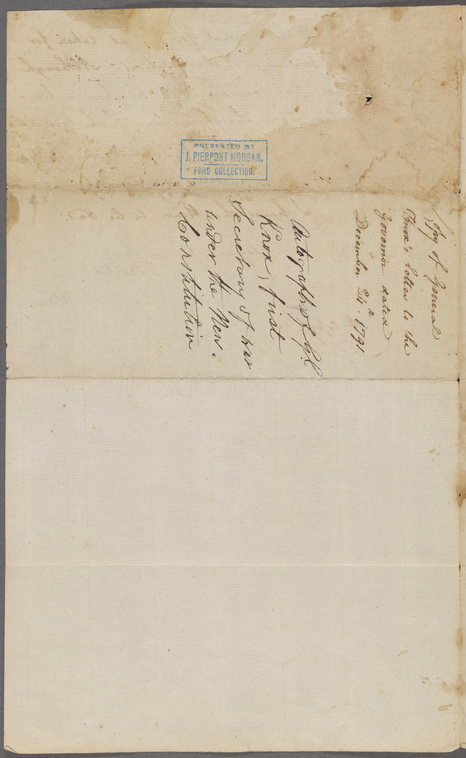 PRESENTED BY
J. PIERPONT MORGAN,
FORD COLLECTION.
Copy of General
Knox's Letter to the
Governor dated
December 24th 1791.
Autograph of Gl
Knox, first
Secretary of War
under the New
Constitution